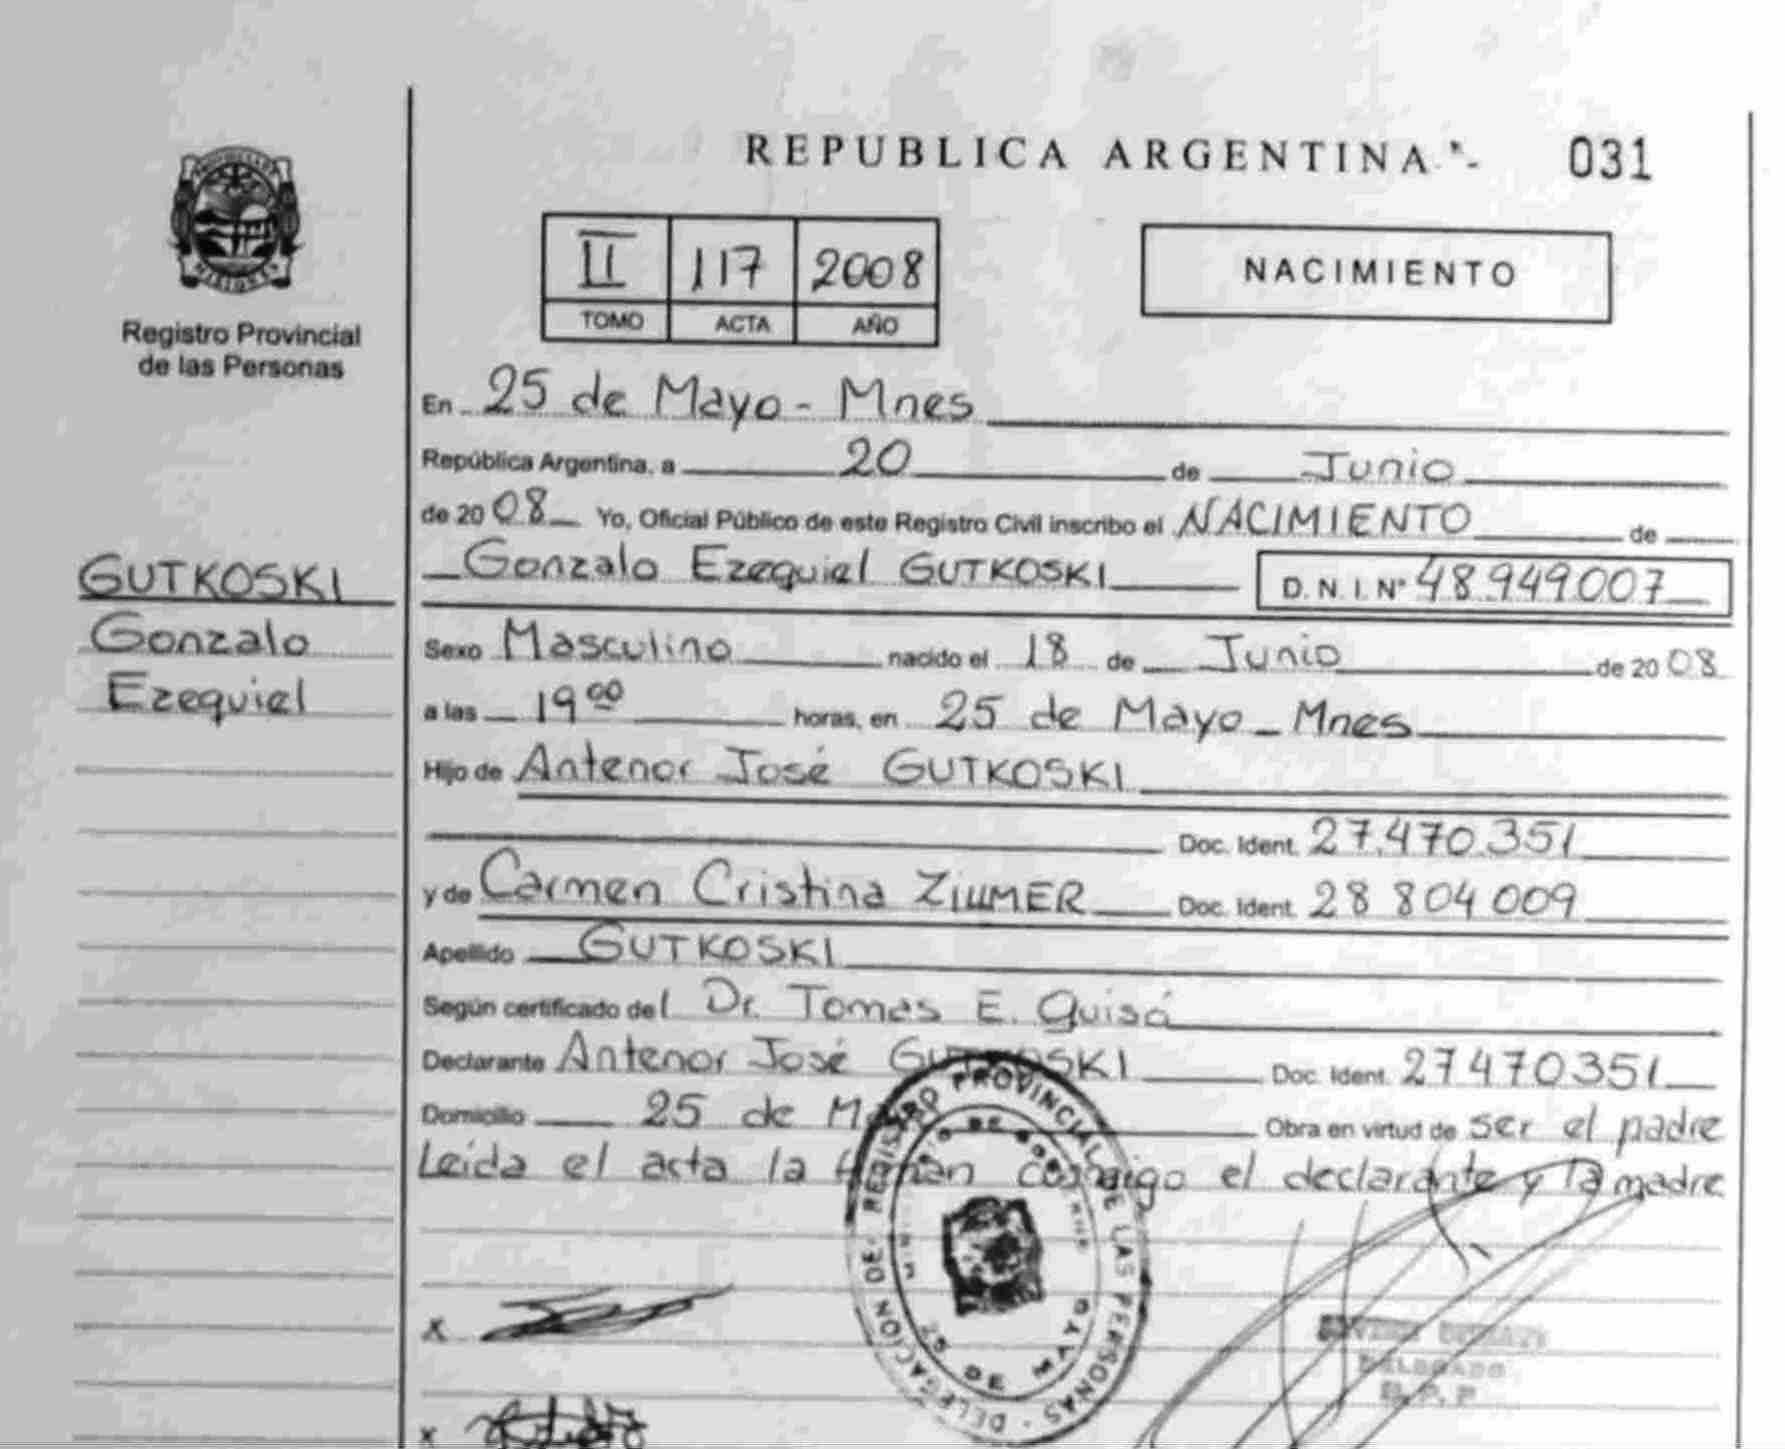 REPUBLICA ARGENTINA.-
031
MISIONES
Registro Provincial
de las Personas
II 117 2008
TOMO ACTA AÑO
NACIMIENTO
En 25 de Mayo - Mnes
República Argentina, a 20 de Junio
de 20 08 Yo, Oficial Público de este Registro Civil inscribo el NACIMIENTO de
Gonzalo Ezequiel GUTKOSKI D.N.I. Nº 48.949.007
GUTKOSKI
Gonzalo
Ezequiel
Sexo Masculino nacido el 18 de Junio de 20 08
a las 19 00 horas, en 25 de Mayo - Mnes
Hijo de Antenor José GUTKOSKI
Doc. Ident. 27.470.351
y de Carmen Cristina Doc. Ident. 28 804 009
Apellido GUTKOSKI
Según certificado del Dr. Tomas E. Quisá
Declarante Antenor José GUTKOSKI Doc. Ident. 27470351
Domicilio 25 de Obra en virtud de ser el padre
Leída el acta la firman conmigo el declarante y la madre
REGISTRO PROVINCIAL DE LAS PERSONAS - DELEGACION DE
25 DE MAYO
X
DELEGADO
R.P.P
X